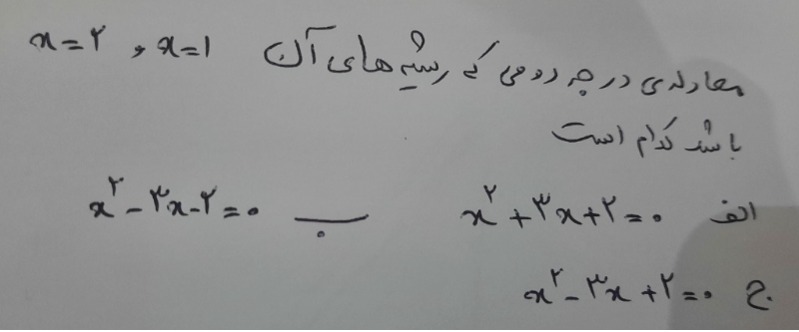 معادله‌ی درجه دومی که ریشه‌های آن x=1 و x=۲
باشد کدام است
الف x²+۳x+۲=۰ ب x²-۳x-۲=۰
ج x²-۳x+۲=۰